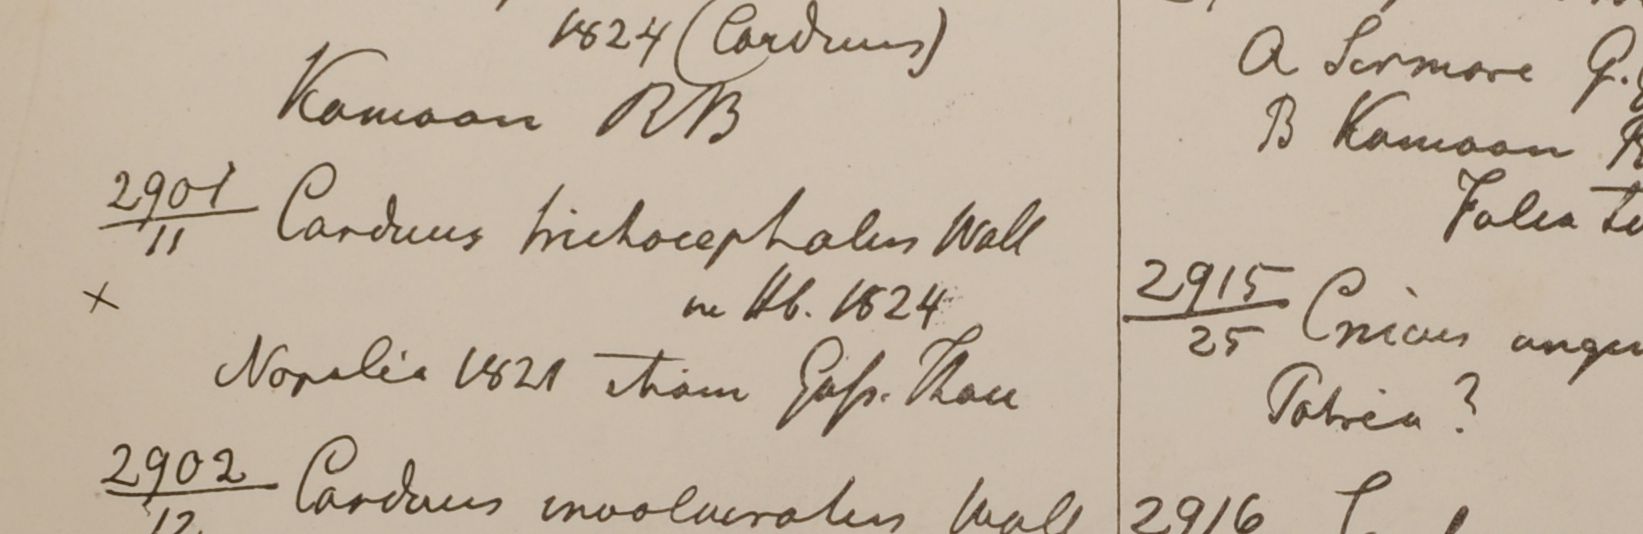 1824 (Carduus)
Kamaon RB
2901
11
Carduus trichocephalus Wall
in Hb. 1824
×
Napalia 1821 etiam Goss. Than
2902
12
Carduus involucratus Wall
A Sirmore G.
B Kamaon R
Folia
2915
25
Cnicus
Patria?
2916